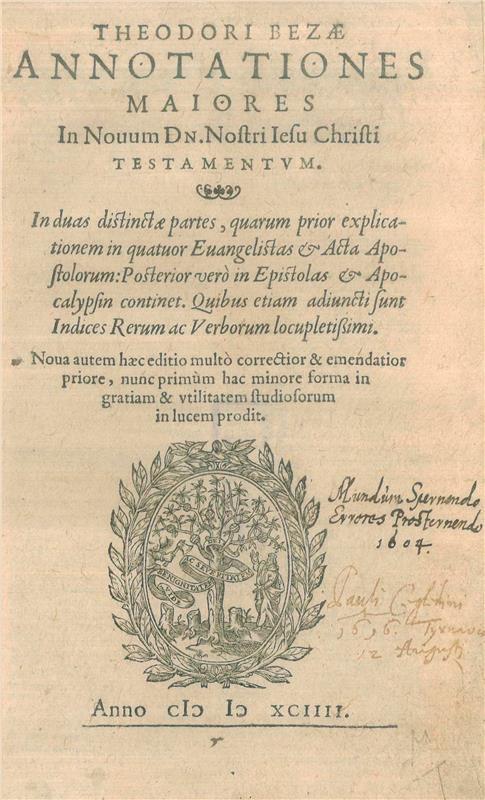 THEODORI BEZÆ
ANNOTATIONES
MAIORES
In Nouum DN. Noſtri Ieſu Chriſti
TESTAMENTVM.
In duas diſtinctæ partes, quarum prior explica-
tionem in quatuor Euangeliſtas & Acta Apo-
ſtolorum: Poſterior verò in Epiſtolas & Apo-
calypſin continet. Quibus etiam adiuncti ſunt
Indices Rerum ac Verborum locupletißimi.
Noua autem hæc editio multò correctior & emendatior
priore, nunc primùm hac minore forma in
gratiam & vtilitatem ſtudioſorum
in lucem prodit.
Mundum Spernendo
Errores Prosternendo
1604.
BENIGNITATEM
AC SEVERITATEM
DEI
Pauli
1616.
12 Augusti
Anno cIↄ Iↄ XCIIII.